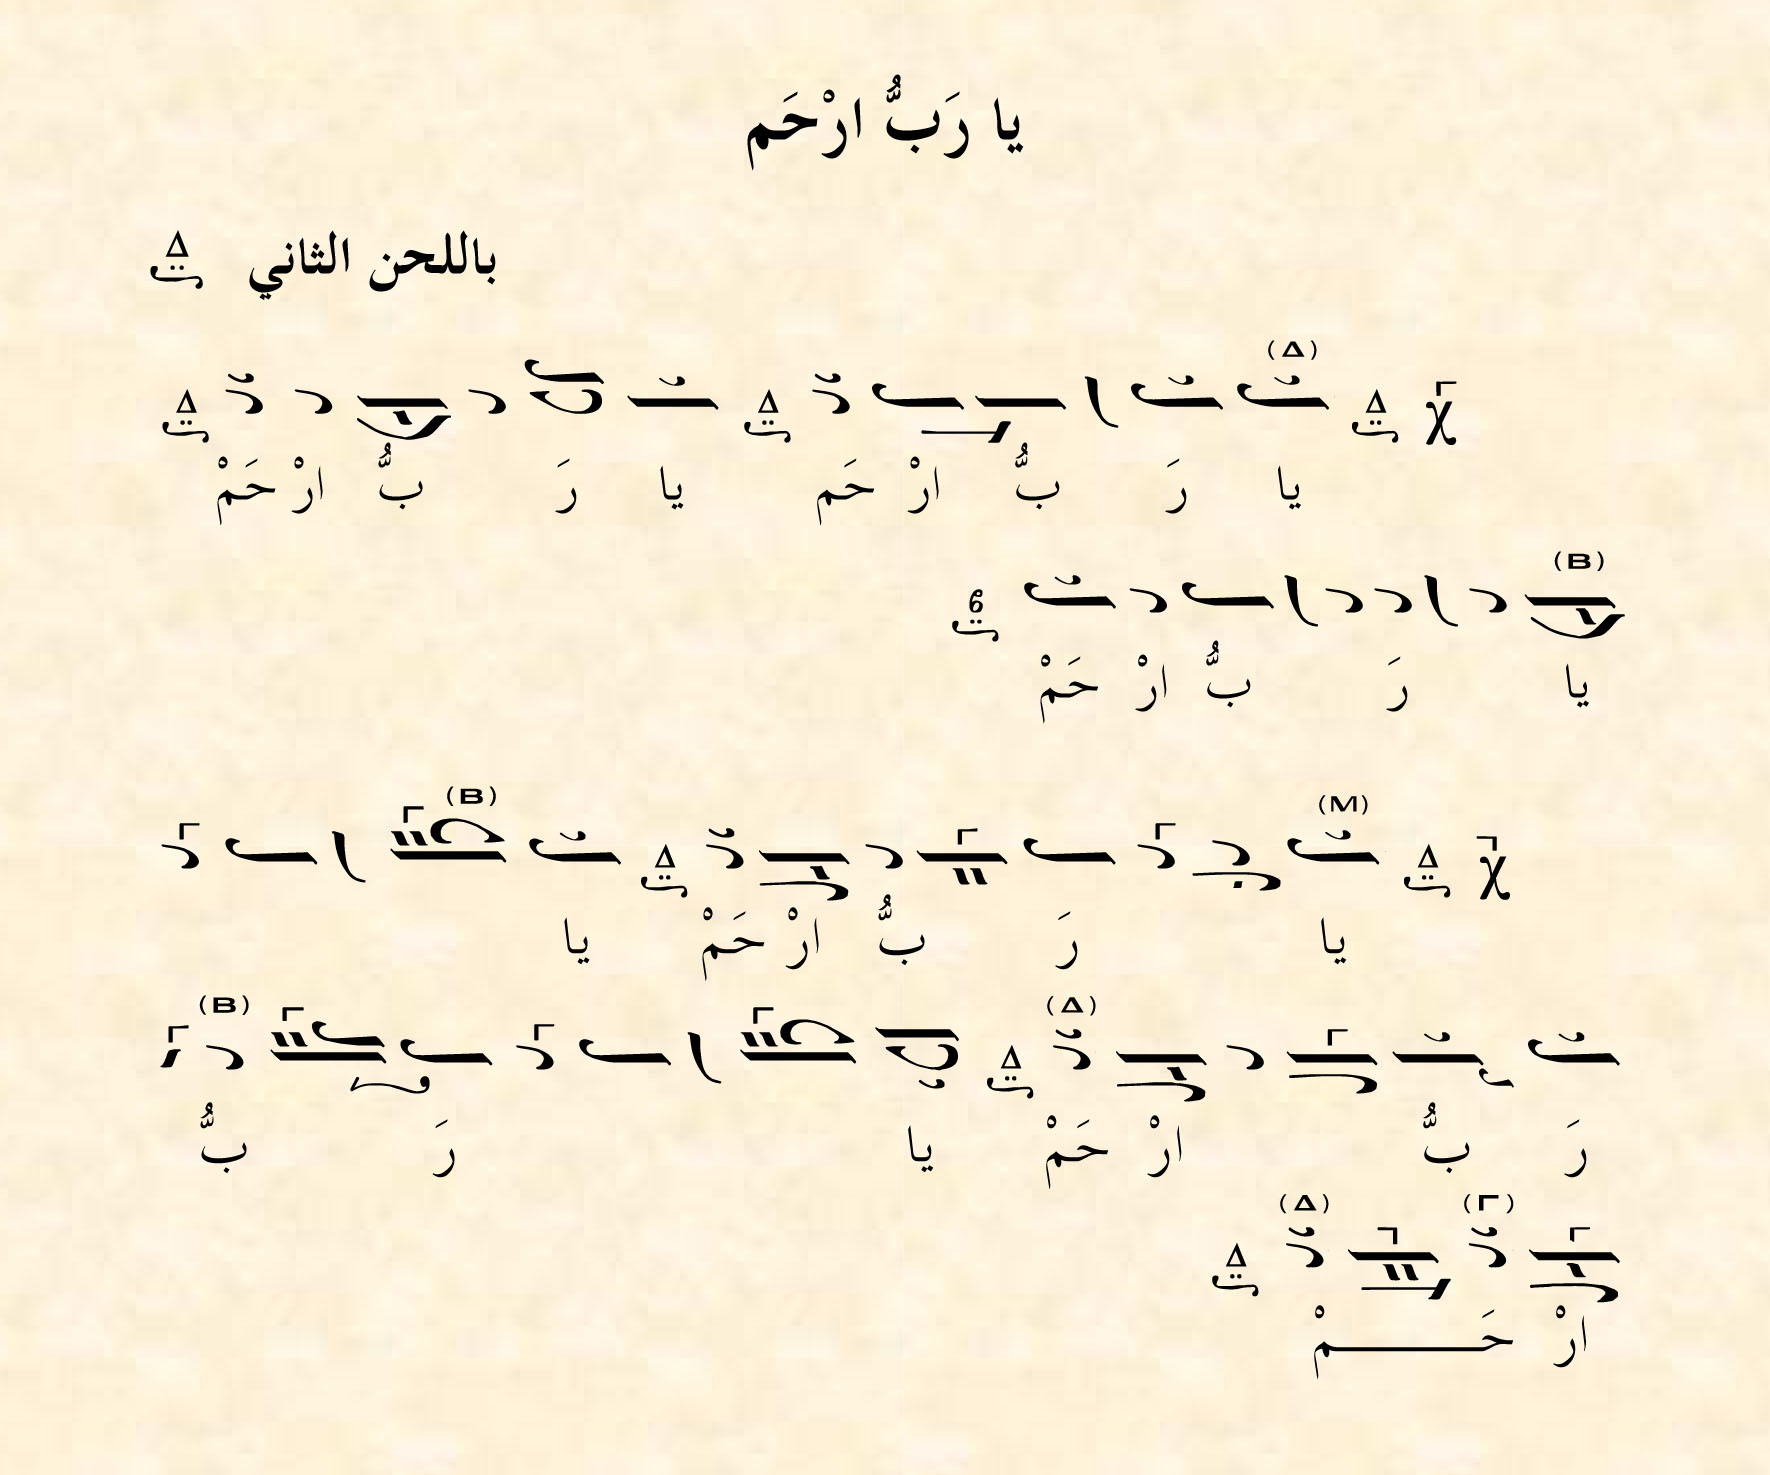 يا رَبُّ ارْحَم
باللحن الثاني Δ
(Δ)
يا رَ بُّ ارْ حَم يا رَ بُّ ارْ حَمْ
(B)
يا رَ بُّ ارْ حَمْ
(M) (B)
يا رَ بُّ ارْ حَمْ يا
(Δ) (B)
رَ بُّ ارْ حَمْ يا رَ بُّ
(Γ) (Δ)
ارْ حَـــــمْ